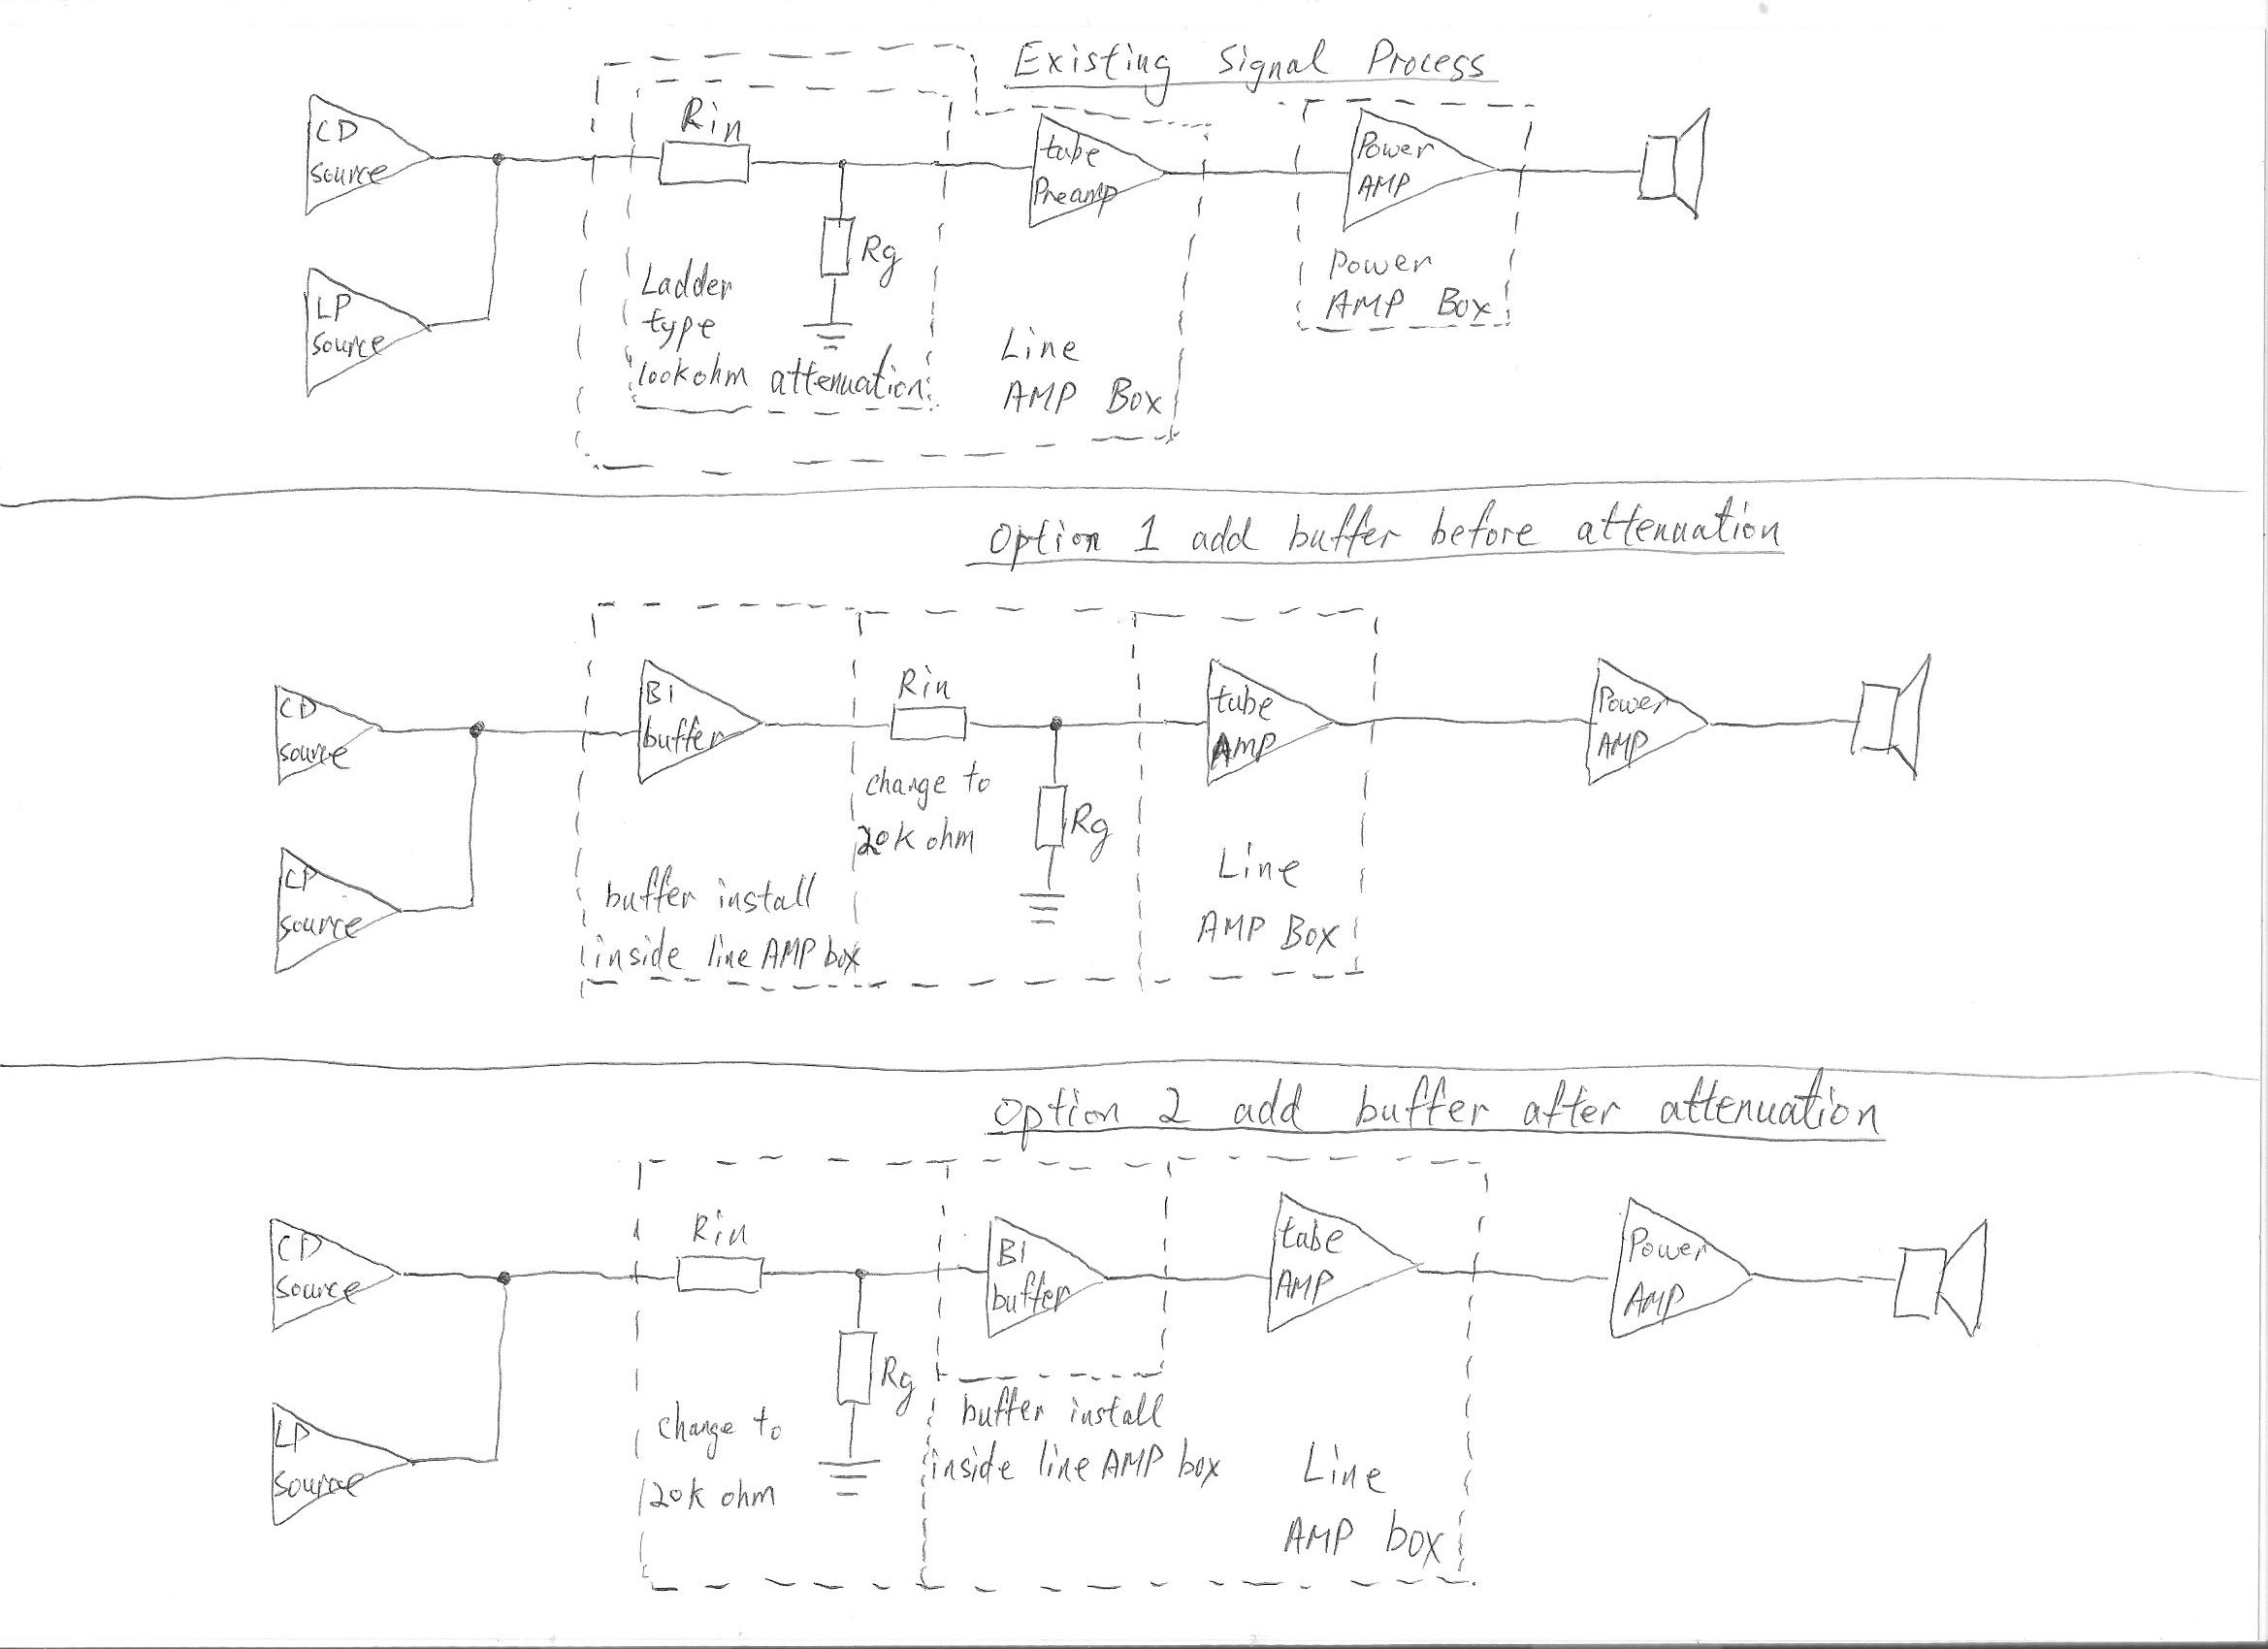 Existing Signal Process
CD
source
LP
source
Rin
Rg
Ladder
type
100kohm attenuation
tube
Preamp
Line
AMP Box
Power
AMP
Power
AMP Box
Option 1 add buffer before attenuation
CD
source
LP
source
B1
buffer
buffer install
inside line AMP box
Rin
change to
20k ohm
Rg
tube
AMP
Line
AMP Box
Power
AMP
Option 2 add buffer after attenuation
CD
source
LP
source
Rin
Rg
change to
20k ohm
B1
buffer
buffer install
inside line AMP box
tube
AMP
Line
AMP box
Power
AMP